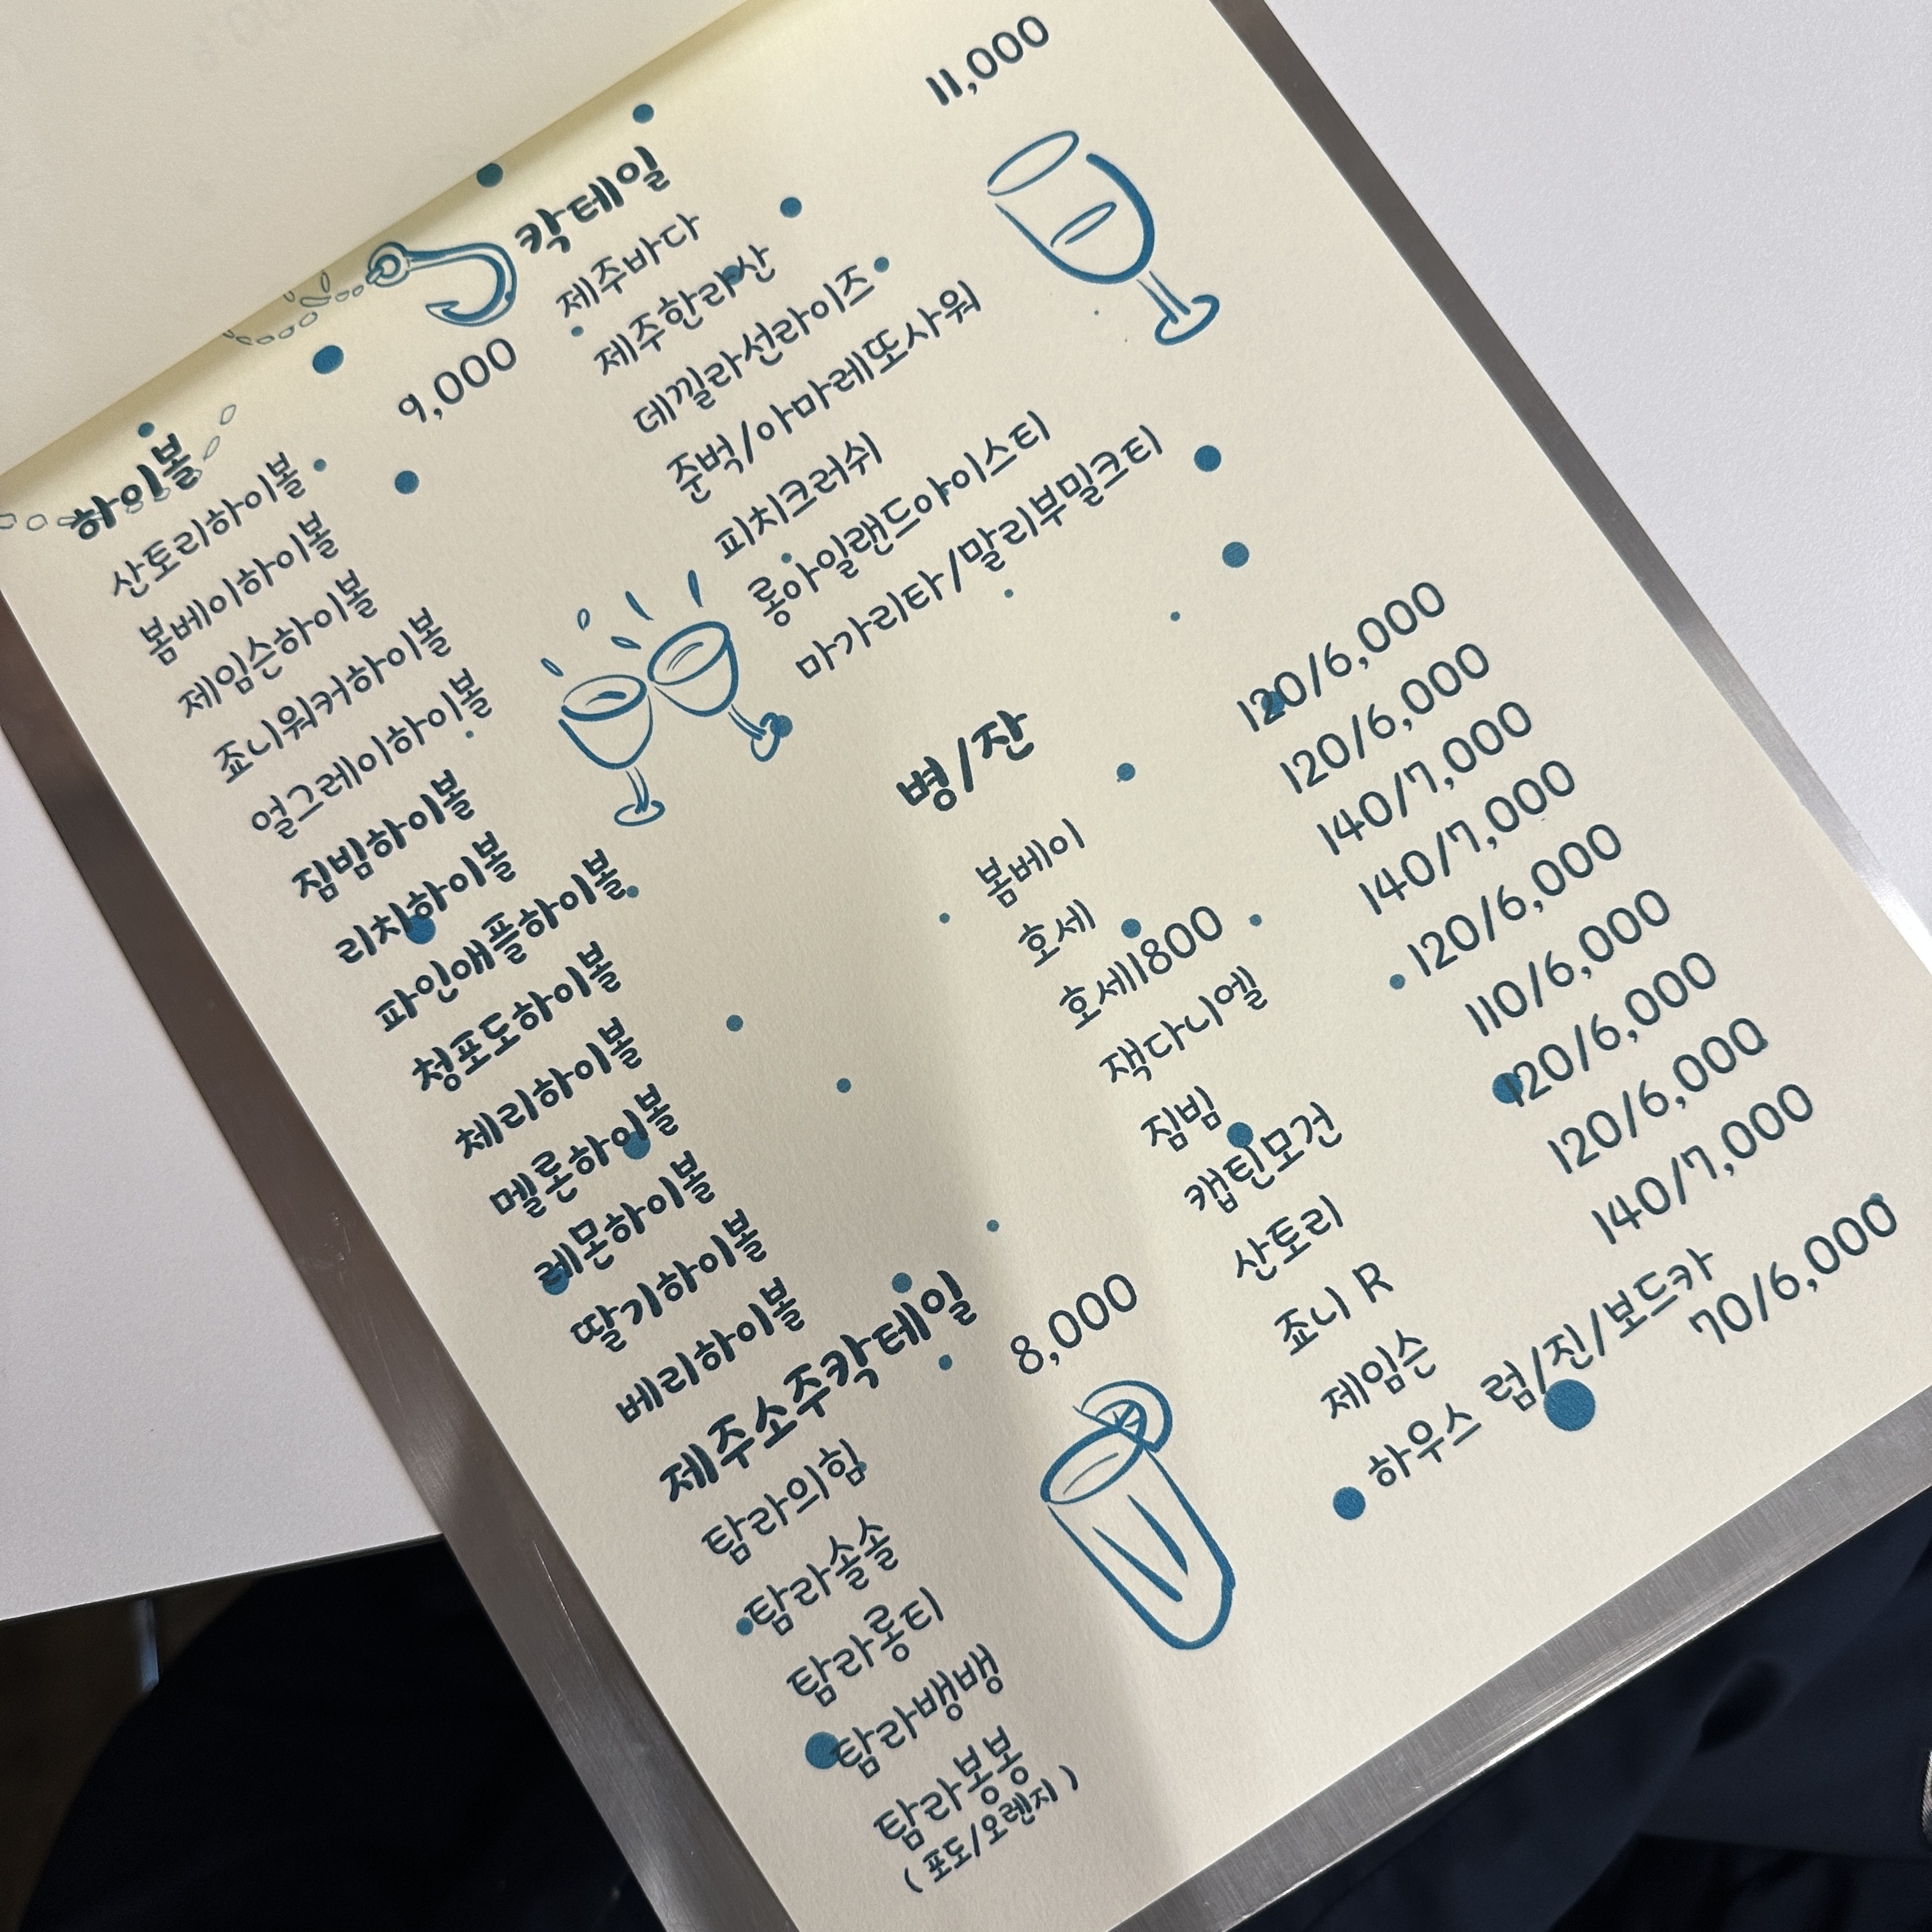 하이볼 9,000
산토리하이볼
봄베이하이볼
제임슨하이볼
죠니워커하이볼
얼그레이하이볼
짐빔하이볼
리치하이볼
파인애플하이볼
청포도하이볼
체리하이볼
멜론하이볼
레몬하이볼
딸기하이볼
베리하이볼
제주소주칵테일 8,000
탐라의힘
탐라솔솔
탐라롱티
탐라뱅뱅
탐라봉봉
(포도/오렌지)
칵테일 11,000
제주바다
제주한라산
데낄라선라이즈
준벅/아마레또사워
피치크러쉬
롱아일랜드아이스티
마가리타/말리부밀크티
병/잔
봄베이 120/6,000
호세 120/6,000
호세1800 140/7,000
잭다니엘 140/7,000
짐빔 120/6,000
캡틴모건 110/6,000
산토리 120/6,000
죠니 R 120/6,000
제임슨 140/7,000
하우스 럼/진/보드카
70/6,000